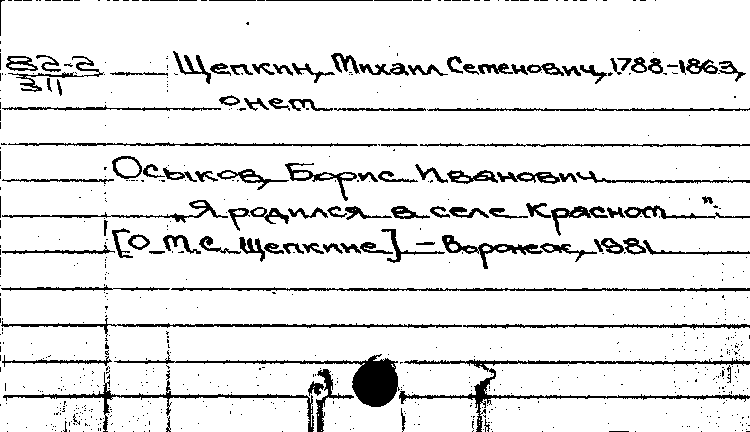 82-2 Щепкин, Михаил Семенович, 1788-1863,
311 о нем
Осыков, Борис Иванович
„Я родился в селе Красном...":
[О М.С. Щепкине] - Воронеж, 1981.